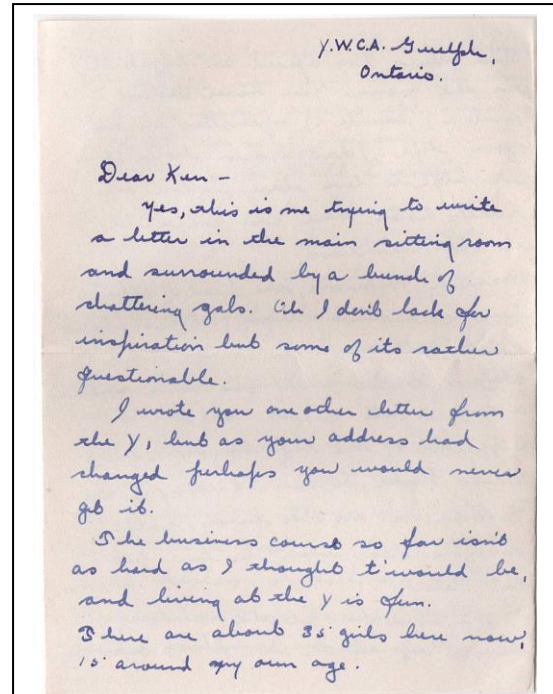 Y.W.C.A. Guelph,
Ontario.
Dear Ken –
Yes, this is me trying to write
a letter in the main sitting room
and surrounded by a bunch of
chattering gals. Oh I don't lack for
inspiration but some of its rather
questionable.
I wrote you one other letter from
the Y, but as your address had
changed perhaps you would never
get it.
The business course so far isn't
as hard as I thought t'would be,
and living at the Y is fun.
There are about 35 girls here now,
15 around my own age.